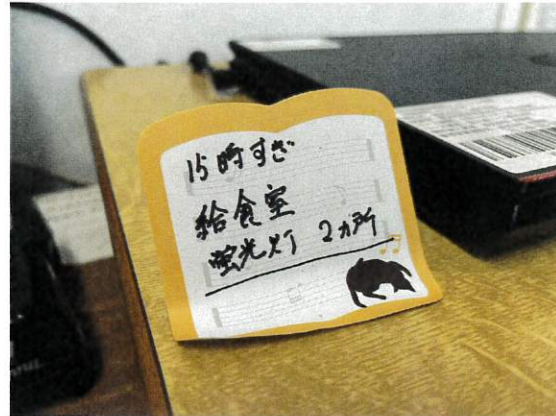 15時すぎ
給食室
蛍光灯 2ヵ所